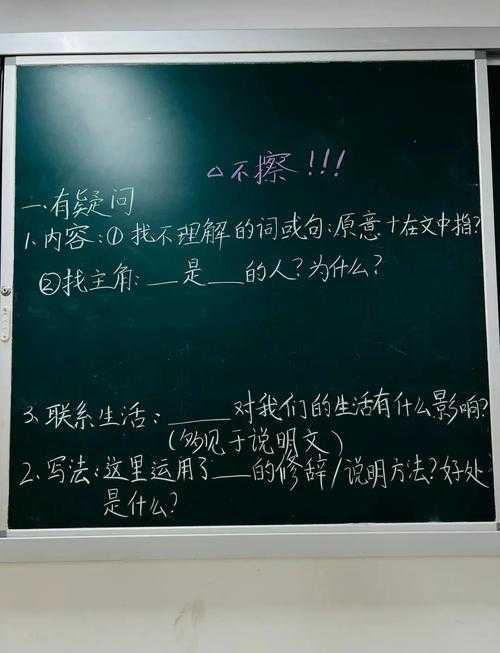 △不擦!!!
一、有疑问
1.内容:①找不理解的词或句:原意+在文中指?
②找主角:__是__的人?为什么?
3.联系生活:____对我们的生活有什么影响?
(多见于说明文)
2.写法:这里运用了__的修辞/说明方法?好处
是什么?